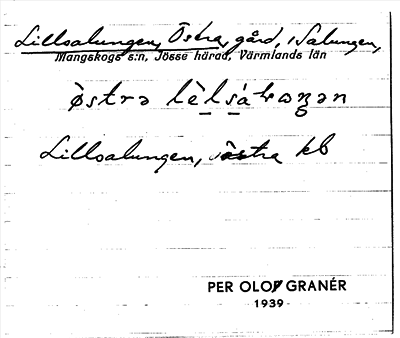 Lillsalungen, Östra, gård, i Salungen,
Mangskogs s:n, Jösse härad, Värmlands län
östra
Lillsalungen, östra kb
PER OLOF GRANÉR
1939